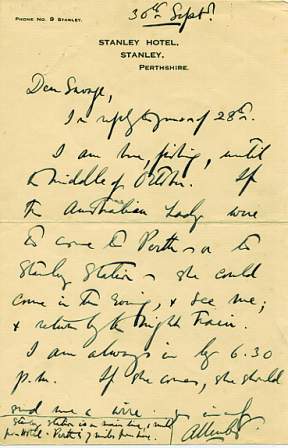 PHONE NO. 9 STANLEY.
30th Septr.
STANLEY HOTEL,
STANLEY,
PERTHSHIRE.
Dear
In reply to yours of 28th.
I am here, fishing, until
the middle of October. If
the Australian Lady were
to come to Perth - or to
Stanley Station - she could
come in the Evening, & see me;
& return by the Night Train.
I am always in by 6.30
p.m. If she comes, she should
send me a wire.
Stanley Station is on main line, 1 mile
from Hotel - Perth is 7 miles from here.